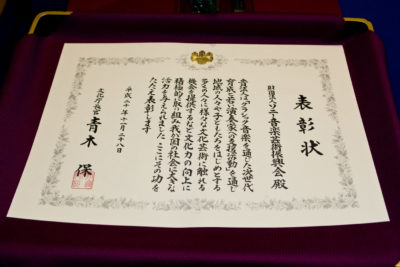 表彰状
財団法人ソニー音楽芸術振興会 殿
貴法人はクラシック音楽を通じた次世代
育成と若い演奏家への支援活動を通じ
地域の人々や子どもたちをはじめとする
多くの人々に様々な文化芸術に触れる
機会を提供するなど文化力の向上に
積極的に取り組み我が国の社会に大きな
活力を与えられました ここにその功を
たたえ表彰します
平成二十年十一月二十八日
文化庁長官 青木 保